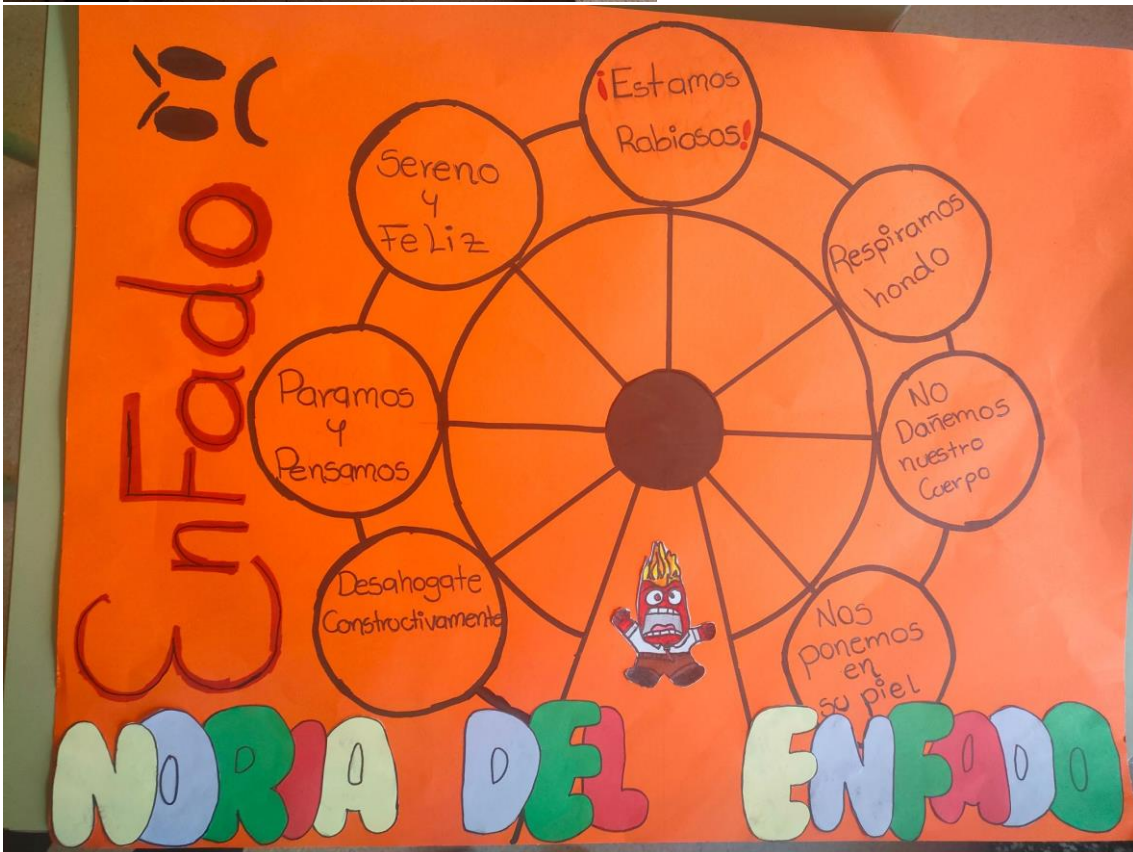 EnFado
¡Estamos
Rabiosos!
Respiramos
hondo
NO
Dañemos
nuestro
Cuerpo
Nos
ponemos
en
su piel
Desahogate
Constructivamente
Paramos
y
Pensamos
Sereno
y
FeLiz
NORIA DEL ENFADO